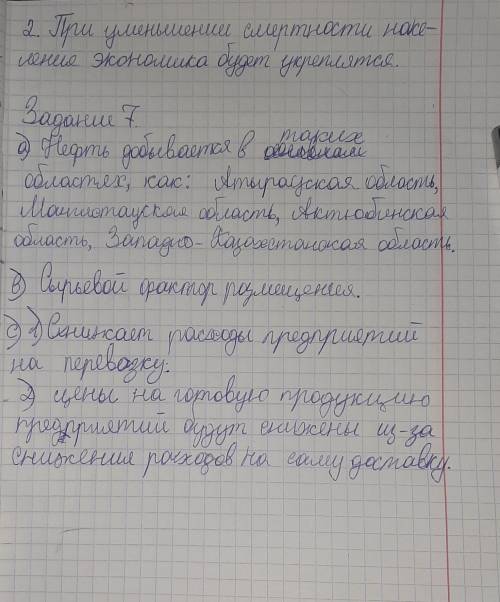 2. При уменьшении смертности насе-
ление экономика будет укреплятся.
Задание 7.
а) Нефть добывается в таких
областях, как: Атырауская область,
Мангистауская область, Актюбинская
область, Западно-Казахстанская область.
в) Сырьевой фактор размещения.
с) 1) Снижает расходы предприятий
на перевозку.
2) цены на готовую продукцию
предприятий будут снижены из-за
снижения расходов на саму доставку.